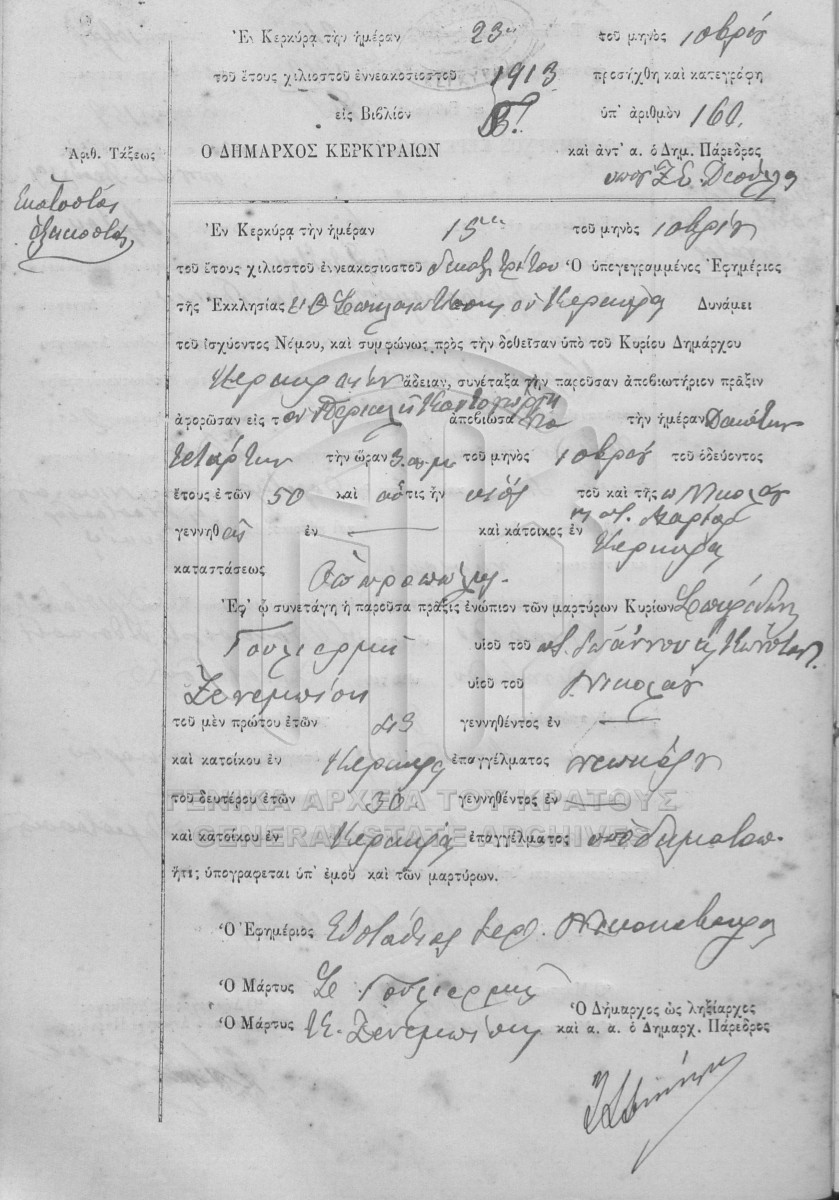 Ἐν Κερκύρᾳ τὴν ἡμέραν 23ην τοῦ μηνὸς 10βρίου
τοῦ ἔτους χιλιοστοῦ ἐννεακοσιοστοῦ 1913 προσήχθη καὶ κατεγράφη
εἰς Βιβλίον Β' ὑπ' ἀριθμὸν 160
Ἀριθ. Τάξεως
Ο ΔΗΜΑΡΧΟΣ ΚΕΡΚΥΡΑΙΩΝ καὶ ἀντ' α. ὁ Δημ. Πάρεδρος
Ἑκατοστὸς
ἑξηκοστὸς
Ἐν Κερκύρᾳ τὴν ἡμέραν 15ην τοῦ μηνὸς 10βρίου
τοῦ ἔτους χιλιοστοῦ ἐννεακοσιοστοῦ δεκάτου τρίτου Ὁ ὑπογεγραμμένος Ἐφημέριος
τῆς Ἐκκλησίας Κερκύρᾳ Δυνάμει
τοῦ ἰσχύοντος Νόμου, καὶ συμφώνως πρὸς τὴν δοθεῖσαν ὑπὸ τοῦ Κυρίου Δημάρχου
Κερκυραίων ἄδειαν, συνέταξα τὴν παροῦσαν ἀποβιωτήριον πρᾶξιν
ἀφορῶσαν εἰς τὸν Περικλῆ ἀποβιώσαντα τὴν ἡμέραν Δεκάτην
τετάρτην τὴν ὥραν 3 π.μ. τοῦ μηνὸς 10βρίου τοῦ ὁδεύοντος
ἔτους ἐτῶν 50 καὶ ὅστις ἦν υἱὸς τοῦ καὶ τῆς π. Νικολάου
κ π. Μαρίας
γεννηθεὶς ἐν — καὶ κάτοικος ἐν Κερκύρᾳ
καταστάσεως
Ἐφ' ᾧ συνετάγη ἡ παροῦσα πρᾶξις ἐνώπιον τῶν μαρτύρων Κυρίων Σπυρίδων
Γουλιέρμη υἱοῦ τοῦ π. Ἰωάννου κ Κωνσταντ.
Ζενεμπίση υἱοῦ τοῦ Νικολάου
τοῦ μὲν πρώτου ἐτῶν 43 γεννηθέντος ἐν —
καὶ κατοίκου ἐν Κερκύρᾳ ἐπαγγέλματος
τοῦ δευτέρου ἐτῶν 30 γεννηθέντος ἐν —
καὶ κατοίκου ἐν Κερκύρᾳ ἐπαγγέλματος ὑποδηματοπ.
ἥτις ὑπογράφεται ὑπ' ἐμοῦ καὶ τῶν μαρτύρων.
Ὁ Ἐφημέριος Εὐστάθιος ἱερ.
Ὁ Μάρτυς Σ Γουλιέρμης
Ὁ Δήμαρχος ὡς ληξίαρχος
Ὁ Μάρτυς Κ. Ζενεμπίσης καὶ α. α. ὁ Δημαρχ. Πάρεδρος
ΓΕΝΙΚΑ ΑΡΧΕΙΑ ΤΟΥ ΚΡΑΤΟΥΣ
GENERAL STATE ARCHIVES